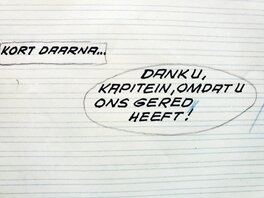 KORT DAARNA...
DANK U,
KAPITEIN, OMDAT U
ONS GERED
HEEFT!